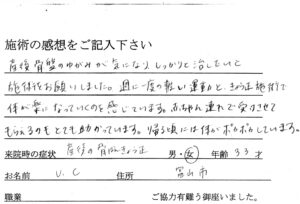 施術の感想をご記入下さい
産後骨盤のゆがみが気になり、しっかりと治したいと
施術をお願いしました。週に一度の軽い運動と、きょう正施術で
体が楽になっていくのを感じています。赤ちゃん連れで受けさせて
もらえるのもとても助かっています。帰る頃には体がポカポカしています。
来院時の症状 産後の骨盤きょう正 男・女 年齢 33才
お名前 U.C 住所 富山市
職業 ご協力有難う御座いました。